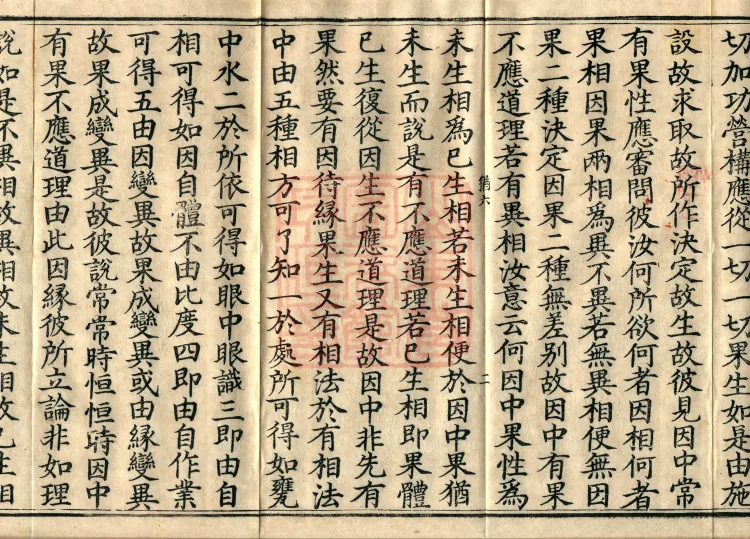 切加功營構應從一切一切果生如是由施
設故求取故所作決定故生故彼見因中常
有果性應審問彼汝何所欲何者因相何者
果相因果兩相為異不異若無異相便無因
果二種決定因果二種無差別故因中有果
不應道理若有異相汝意云何因中果性為
未生相為已生相若未生相便於因中果猶
未生而說是有不應道理若已生相即果體
已生復從因生不應道理是故因中非先有
果然要有因待緣果生又有相法於有相法
中由五種相方可了知一於處所可得如甕
中水二於所依可得如眼中眼識三即由自
相可得如因自體不由比度四即由自作業
可得五由因變異故果成變異或由緣變異
故果成變異是故彼說常常時恒恒時因中
有果不應道理由此因緣彼所立論非如理
說如是不異相故異相故未生相故已生相